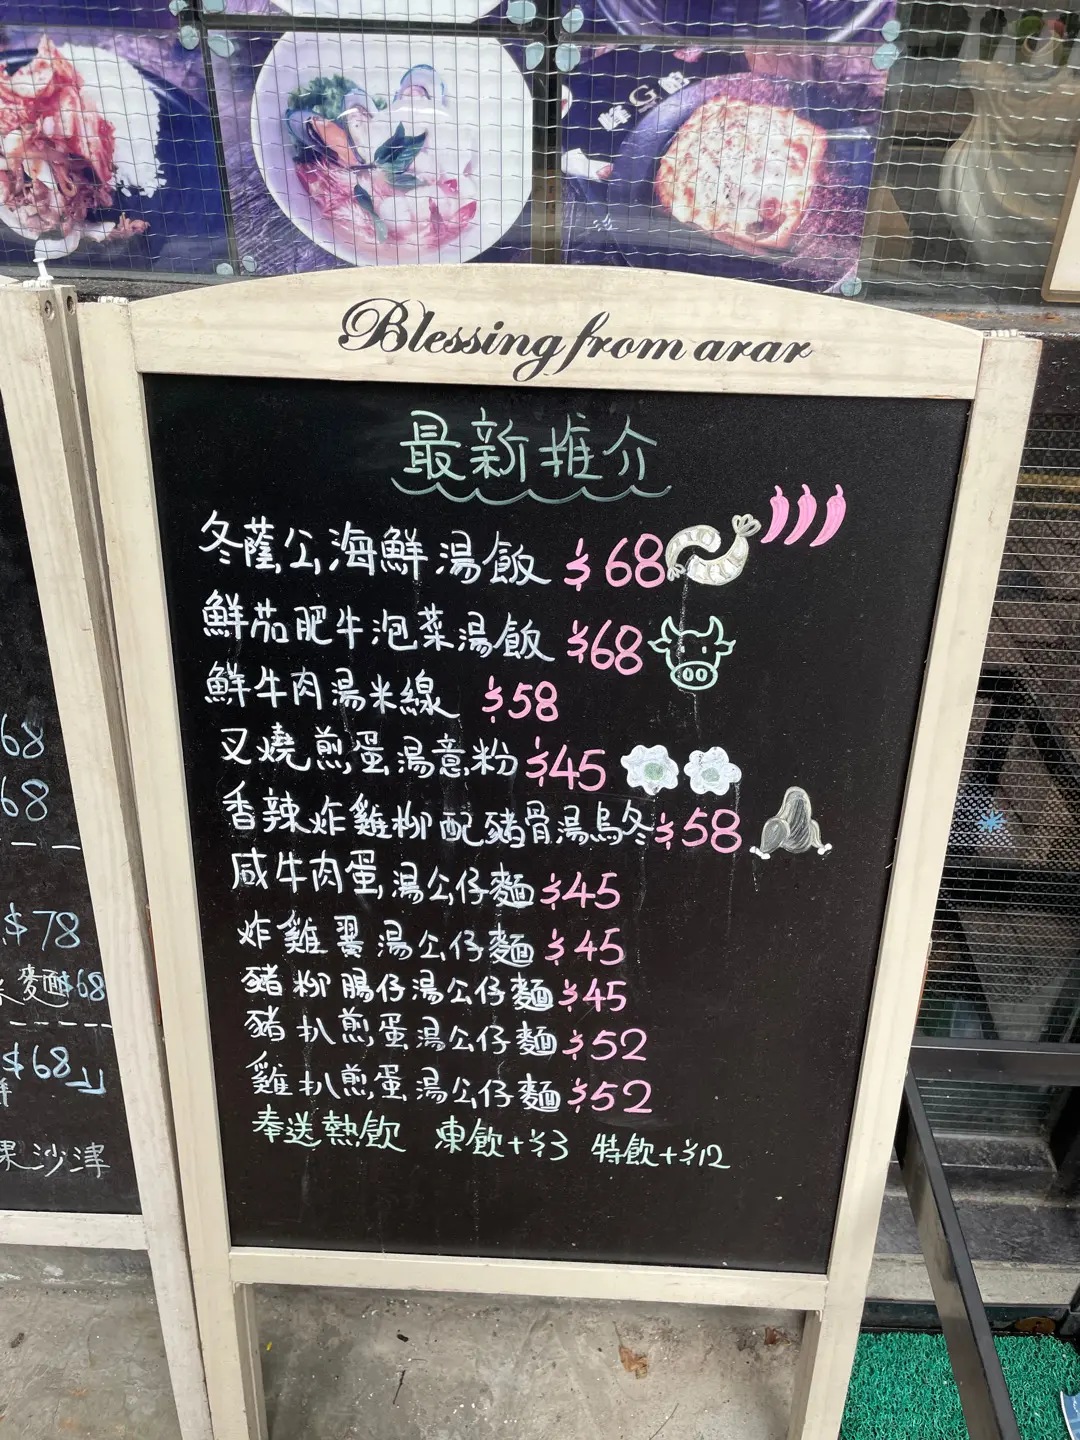 Blessing from arar
最新推介
冬蔭公海鮮湯飯 $68
鮮茄肥牛泡菜湯飯 $68
鮮牛肉湯米線 $58
叉燒煎蛋湯意粉 $45
香辣炸雞柳配豬骨湯烏冬 $58
咸牛肉蛋湯公仔麵 $45
炸雞翼湯公仔麵 $45
豬柳腸仔湯公仔麵 $45
豬扒煎蛋湯公仔麵 $52
雞扒煎蛋湯公仔麵 $52
奉送熱飲 凍飲+$3 特飲+$12
68
68
$78
麵$68
$68
沙津